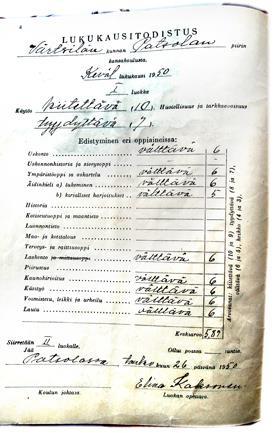 LUKUKAUSITODISTUS
Värtsilän kunnan Patsolan piirin
kansakoulusta.
Kevät lukukausi 1950
I luokka
Käytös kiitettävä (10). Huolellisuus ja tarkkaavaisuus
tyydyttävä (7).
Edistyminen eri oppiaineissa:
Uskonto välttävä 6
Uskonnonhistoria ja siveysoppi —
Ympäristöoppi ja askartelu välttävä 6
Äidinkieli a) lukeminen välttävä 6
b) kirjalliset harjoitukset välttävä 5
Historia
Kotiseutuoppi ja maantieto
Luonnontieto
Maa- ja kotitalous
Terveys- ja raittiusoppi
Laskento ja mittausoppi välttävä 6
Piirustus
Kaunokirjoitus välttävä 6
Käsityö välttävä 6
Voimistelu, leikki ja urheilu välttävä 6
Laulu välttävä 6
Arvosanat: kiitettävä (10 ja 9) tyydyttävä (8 ja 7),
välttävä (6 ja 5), heikko (4 ja 3).
Keskiarvo 5,87
Siirretään II luokalle.
Jää Ollut poissa — tuntia.
Patsolassa touko kuun 26 päivänä 1950
Elina
Koulun johtaja. Luokan opettaja.